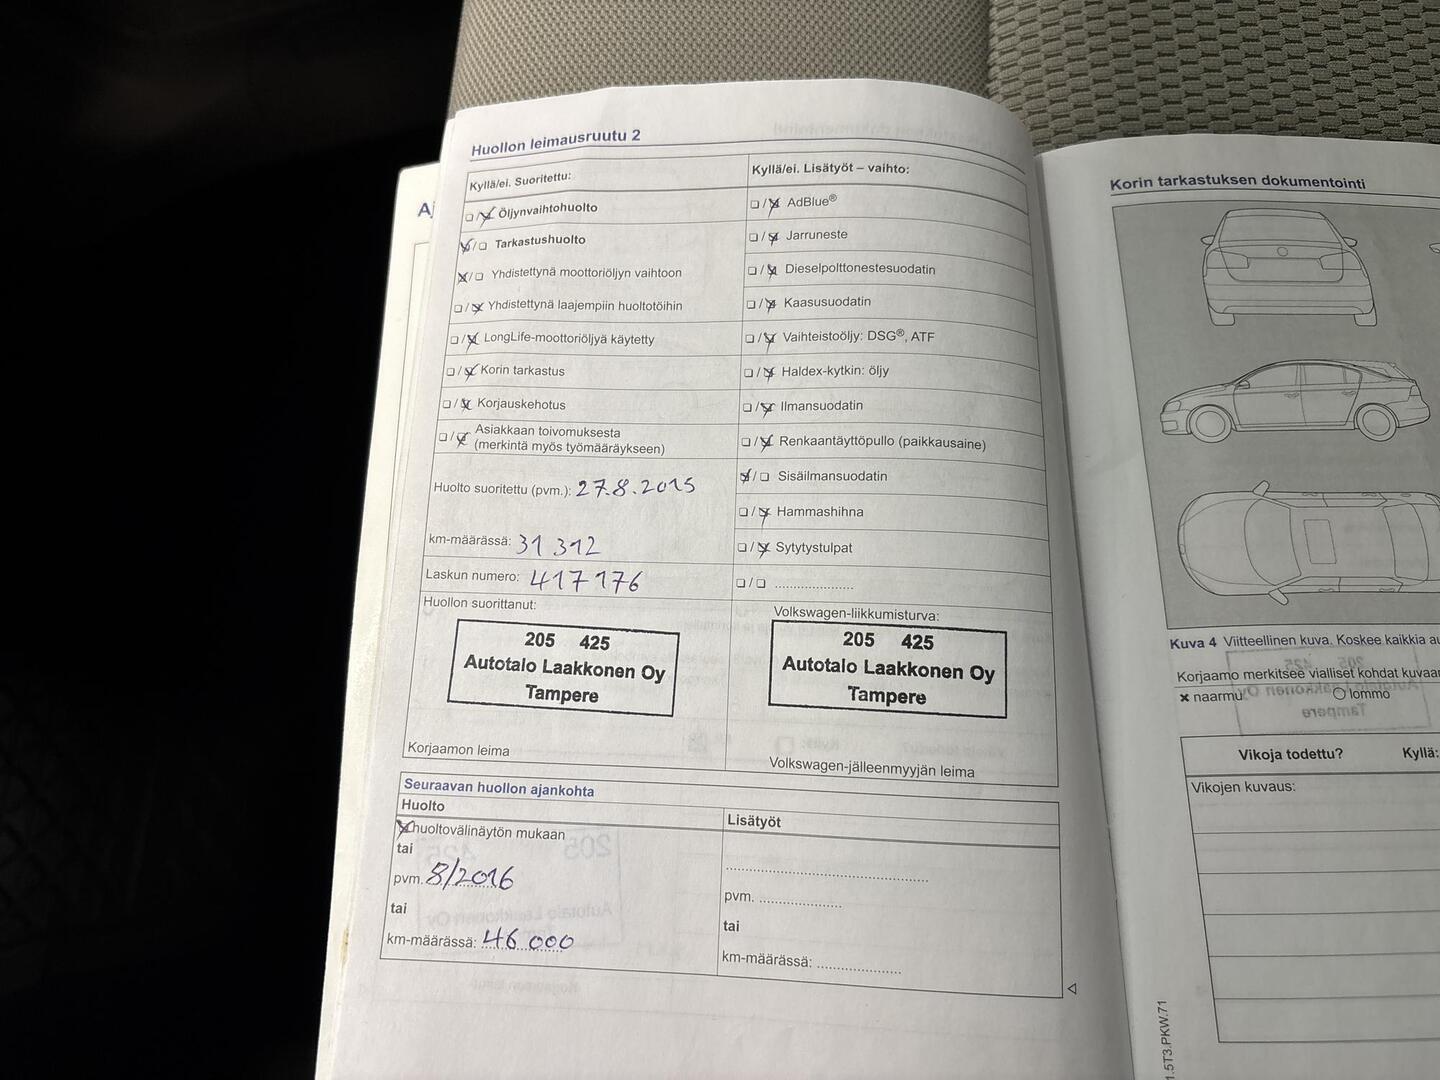 Huollon leimausruutu 2
Kyllä/ei. Suoritettu:
☐/☒ Öljynvaihtohuolto
☒/☐ Tarkastushuolto
☒/☐ Yhdistettynä moottoriöljyn vaihtoon
☐/☒ Yhdistettynä laajempiin huoltotöihin
☐/☒ LongLife-moottoriöljyä käytetty
☐/☒ Korin tarkastus
☐/☒ Korjauskehotus
☐/☒ Asiakkaan toivomuksesta
(merkintä myös työmääräykseen)
Huolto suoritettu (pvm.): 27.8.2015
km-määrässä: 31 312
Laskun numero: 417176
Huollon suorittanut:
205 425
Autotalo Laakkonen Oy
Tampere
Korjaamon leima
Kyllä/ei. Lisätyöt – vaihto:
☐/☒ AdBlue®
☐/☒ Jarruneste
☐/☒ Dieselpolttonestesuodatin
☐/☒ Kaasusuodatin
☐/☒ Vaihteistoöljy: DSG®, ATF
☐/☒ Haldex-kytkin: öljy
☐/☒ Ilmansuodatin
☐/☒ Renkaantäyttöpullo (paikkausaine)
☒/☐ Sisäilmansuodatin
☐/☒ Hammashihna
☐/☒ Sytytystulpat
☐/☐ ....................
Volkswagen-liikkumisturva:
205 425
Autotalo Laakkonen Oy
Tampere
Volkswagen-jälleenmyyjän leima
Seuraavan huollon ajankohta
Huolto
☒ huoltovälinäytön mukaan
tai
pvm. 8/2016
tai
km-määrässä: 46 000
Lisätyöt
pvm. ....................
tai
km-määrässä: ....................
Korin tarkastuksen dokumentointi
Kuva 4 Viitteellinen kuva. Koskee kaikkia
Korjaamo merkitsee vialliset kohdat
× naarmu ○ lommo
Vikoja todettu? Kyllä:
Vikojen kuvaus:
1.5T3.PKW.71